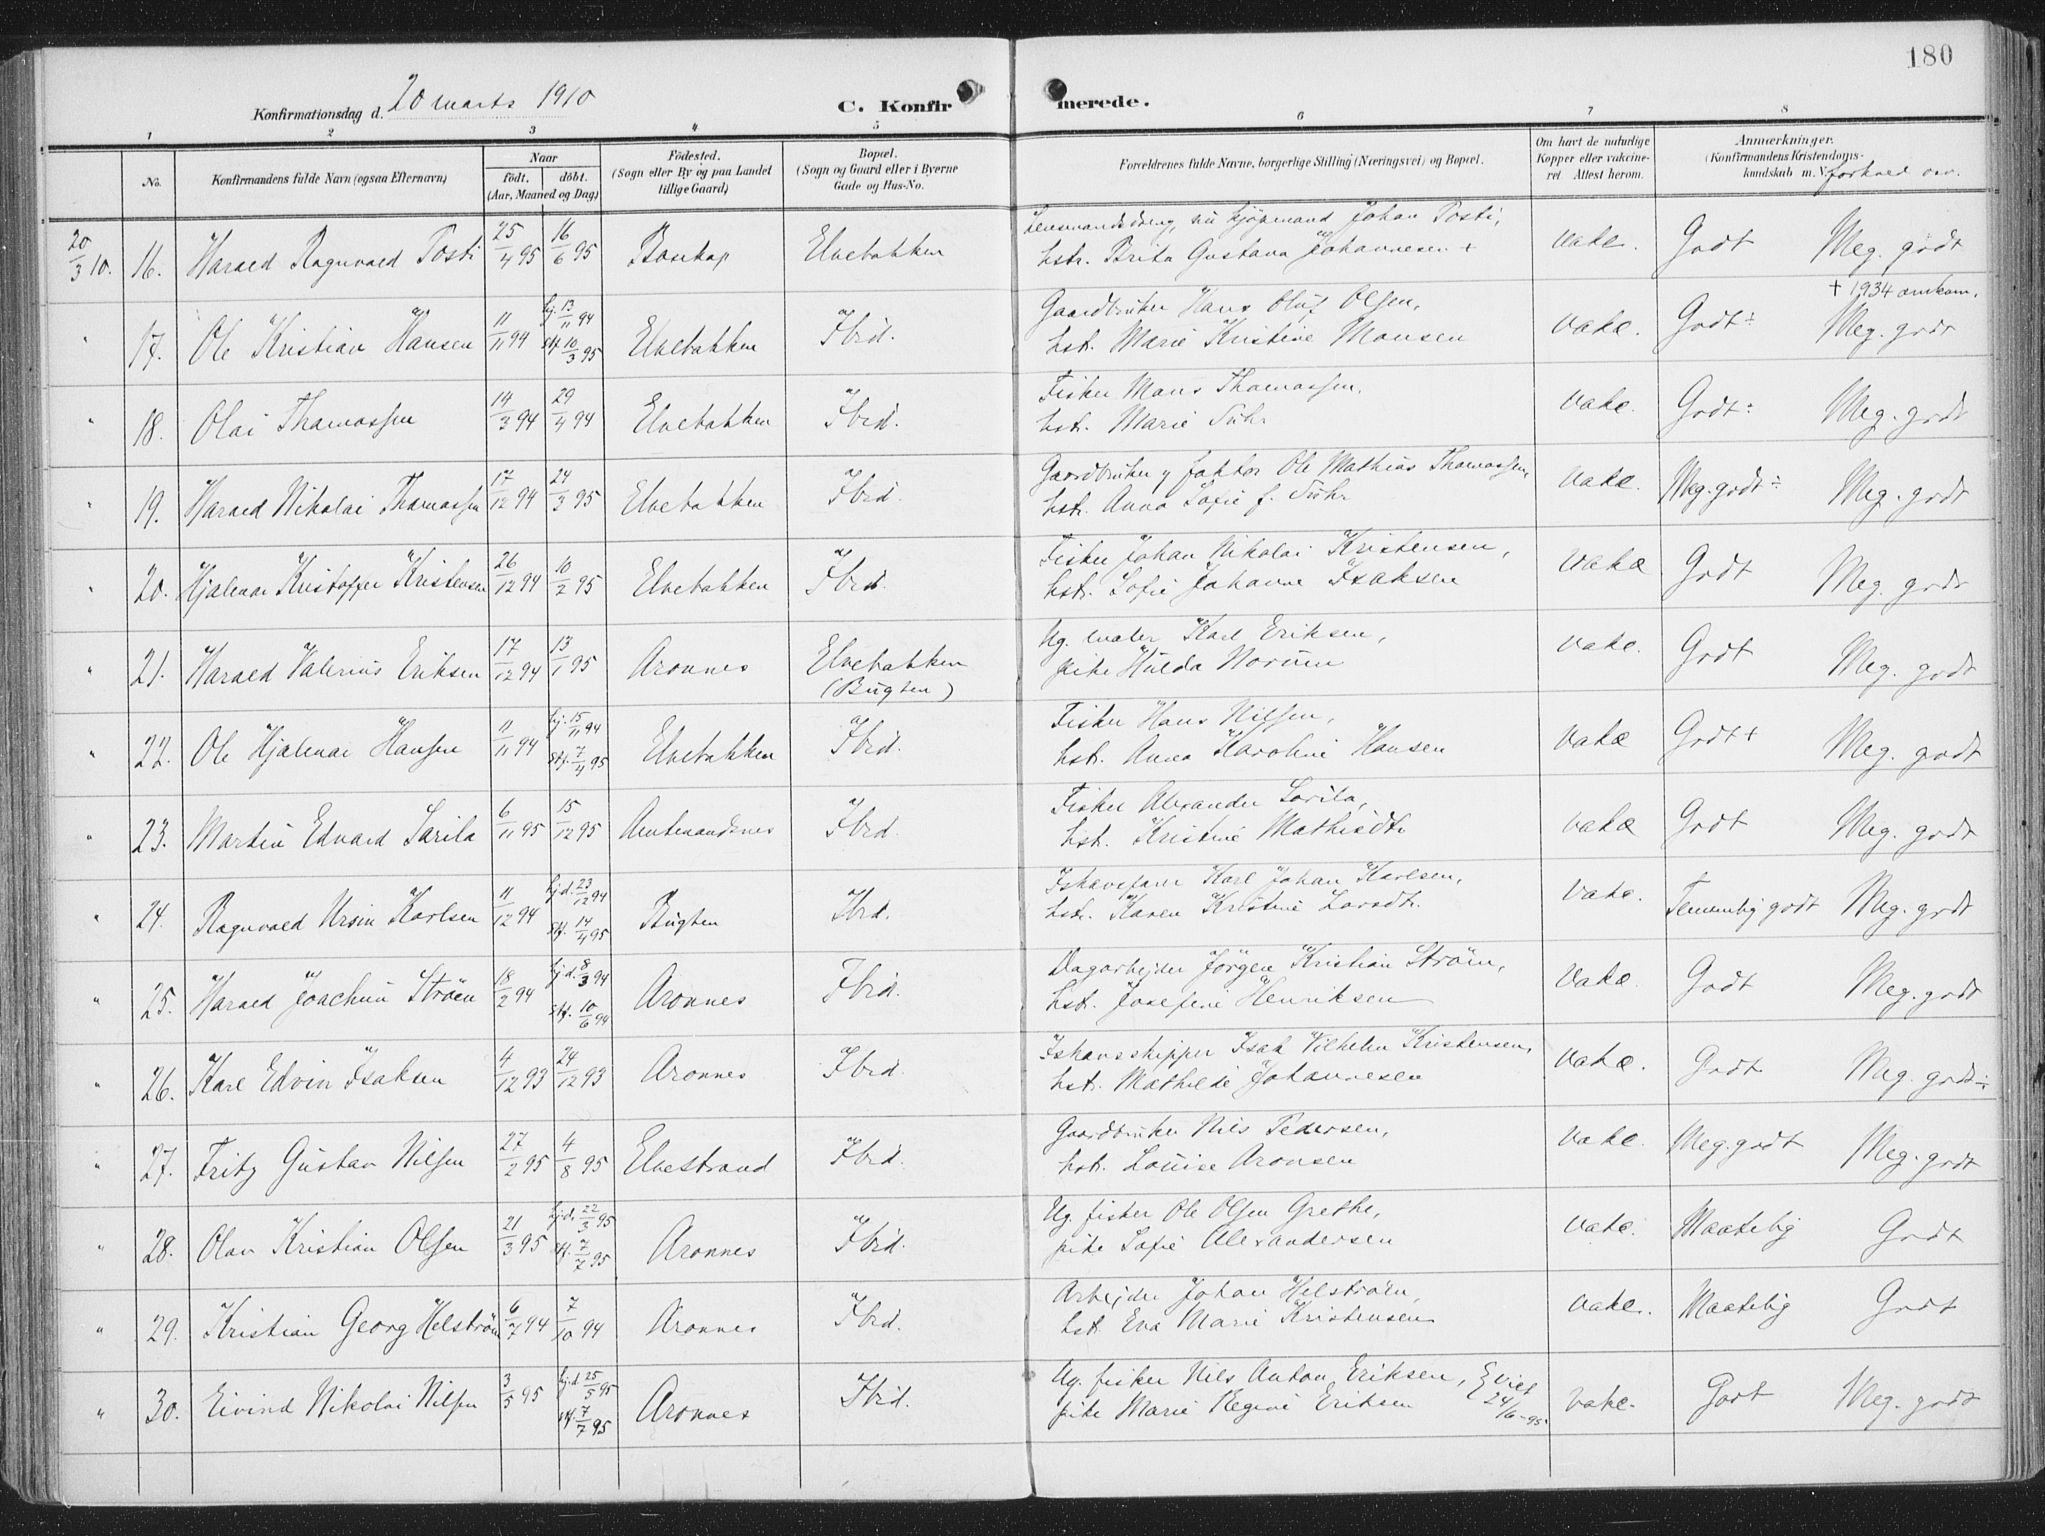 180
Konfirmationsdag d. 20 marts 1910
C. Konfirmerede.
1 2 3 4 5 6 7 8
No.
Konfirmandens fulde Navn (ogsaa Efternavn)
Naar
födt. döbt.
(Aar, Maaned og Dag)
Födested.
(Sogn eller By og paa Landet
tillige Gaard)
Bopæl.
(Sogn og Gaard eller i Byerne
Gade og Hus-No.
Forældrenes fulde Navne, borgerlige Stilling (Næringsvei) og Bopæl.
Om havt de naturlige
Kopper eller vakcine-
ret. Attest herom.
Anmærkninger.
(Konfirmandens Kristendoms-
kundskab m. V. forhold osv.
20/3 10. 16. Harald Ragnvald Posti 25/4 95 16/6 95 Bosekop Elvebakken Lensmandsdreng, nu kjöpmand Johan Posti, vake. Godt Meg. godt
hstr. Brita Gustava Johannesen +
" 17. Ole Kristian Hansen 11/11 94 hj. 13/11 94 Elvebakken Ibid. Gaardbruker Hans Oluf Olsen, vake. Godt ÷ Meg. godt
+ 1934 omkom.
stf. 10/3 95 hstr. Marie Kristine Monsen
" 18. Olai Thomassen 14/3 94 29/4 94 Elvebakken Ibid. Fisker Mons Thomassen, vake. Godt ÷ Meg. godt
hstr. Marie Suhr
" 19. Harald Nikolai Thomassen 17/12 94 24/3 95 Elvebakken Ibid. Gaardbruker og faktor Ole Mathias Thomassen, vake. Meg. godt ÷ Meg. godt
hstr. Anna Sofie f. Suhr
" 20. Hjalmar Kristoffer Kristensen 26/12 94 10/2 95 Elvebakken Ibid. Fisker Johan Nikolai Kristensen, vake Godt Meg. godt
hstr. Sofie Johanne Isaksen
" 21. Harald Valerius Eriksen 17/12 94 13/1 95 Aronnes Elvebakken Ug. maler Karl Eriksen, vake. Godt Meg. godt
(Bugten) pike Hulda Norum
" 22. Ole Hjalmar Hansen 11/11 94 hj. 15/11 94 Elvebakken Ibid. Fisker Hans Nilsen, vake Godt + Meg. godt
stf. 7/4 95 hstr. Anna Karoline Hansen
" 23. Martin Edvard Sarila 6/11 95 15/12 95 Amtmandsnes Ibid. Fisker Alexander Sarila, vake Godt Meg. godt
hstr. Kristine Mathisdtr.
" 24. Ragnvald Ursin Karlsen 11/12 94 hj.d. 23/12 94 Bugten Ibid. Ishavsfarer Karl Johan Karlsen, vake. Temmelig godt Meg. godt
stf. 14/4 95 hstr. Karen Kristine Larsdtr.
" 25. Harald Joachim Ström 18/2 94 hj.d. 8/3 94 Aronnes Ibid. Dagarbejder Jörgen Kristian Ström, vake. Godt Meg. godt
stf. 10/6 94 hstr. Josefine Henriksen
" 26. Karl Edvin Isaksen 4/12 93 24/12 93 Aronnes Ibid. Ishavsskipper Isak Vilhelm Kristensen, vake. Godt Meg. godt ÷
hstr. Mathilde Johannesen
" 27. Fritz Gustav Nilsen 27/2 95 4/8 95 Elvestrand Ibid. Gaardbruker Nils Pedersen, vake. Meg. godt Meg. godt
hstr. Louise Aronsen
" 28. Olav Kristian Olsen 21/3 95 hj.d. 22/3 95 Aronnes Ibid. Ug. fisker Ole Olsen Grethe, vake. Maatelig Godt
stf. 7/7 95 pike Sofie Alexandersen
" 29. Kristian Georg Helström 6/7 94 7/10 94 Aronnes Ibid. Arbejder Johan Helström, vake. Maatelig Godt
hstr. Eva Marie Kristensen
" 30. Eivind Nikolai Nilsen 3/5 95 hj.d. 25/5 95 Aronnes Ibid. Ug. fisker Nils Anton Eriksen, { viet vake. Godt Meg. godt
stf. 7/7 95 pike Marie Regine Eriksen 24/6-95